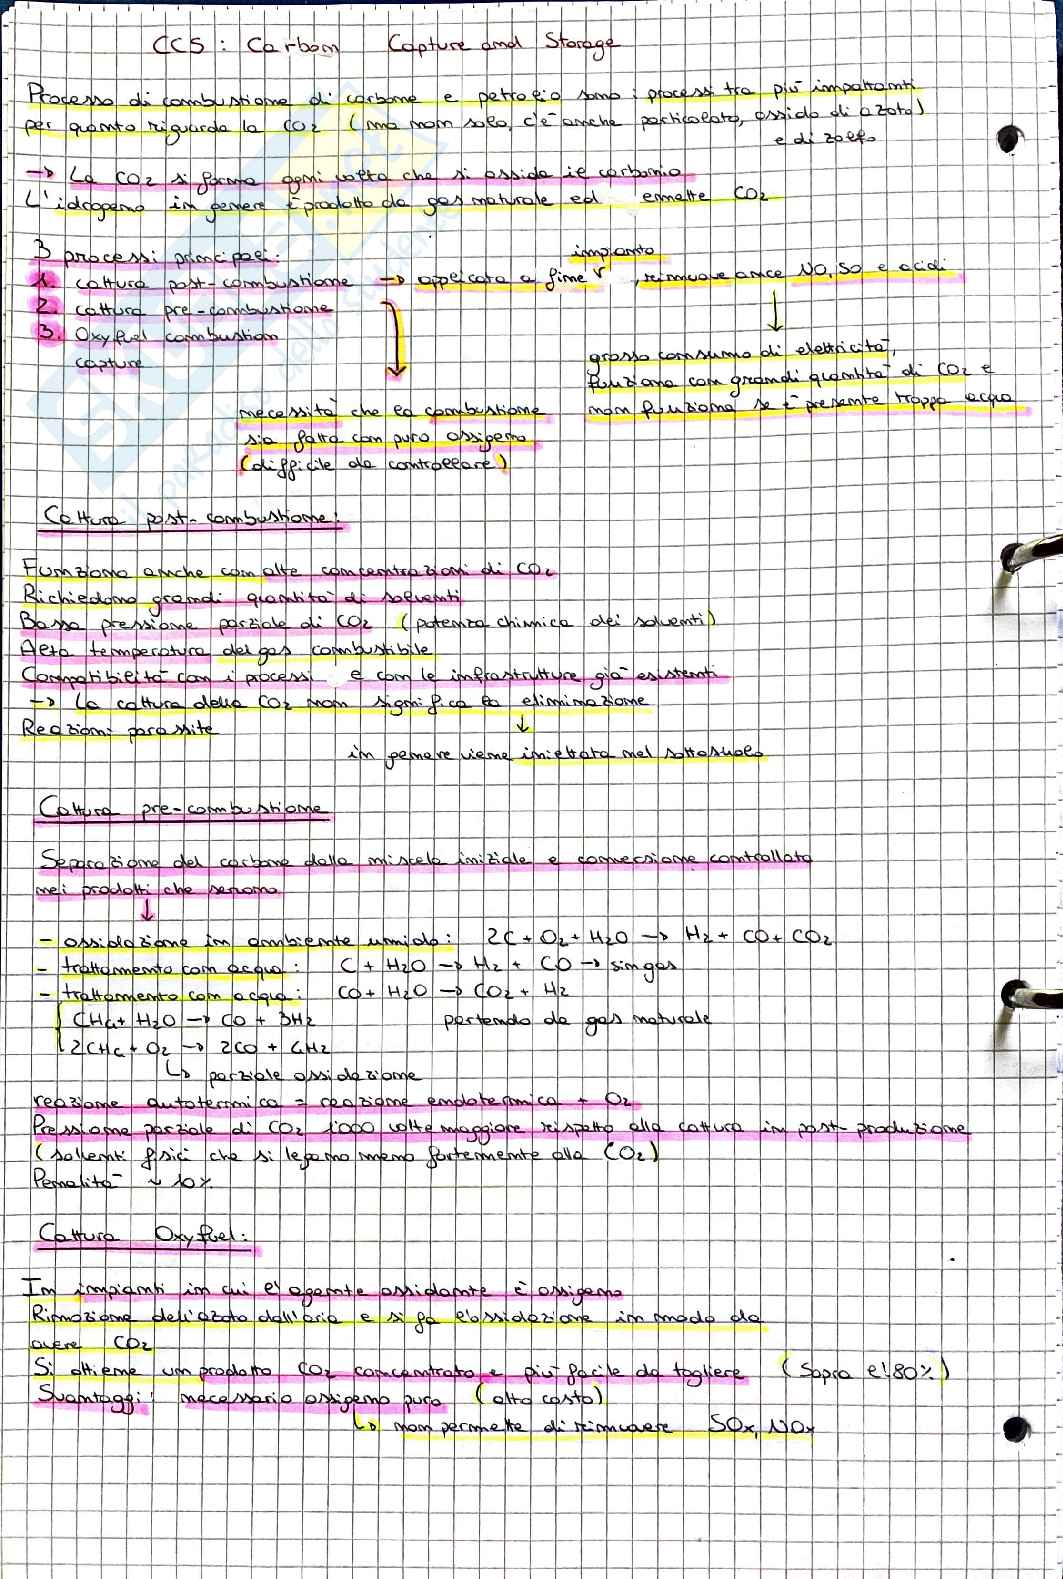 CCS: Carbon Capture and Storage
Processo di combustione di carbone e petrolio sono i processi tra più impattanti
per quanto riguarda la CO2 (ma non solo, c'è anche particolato, ossido di azoto)
e di zolfo
→ La CO2 si forma ogni volta che si ossida il carbonio
L'idrogeno in genere è prodotto da gas naturale ed emette CO2
3 processi principali:
impianto
1. cattura post-combustione → applicata a fine √, rimuove anche NO, SO e acidi
2. cattura pre-combustione
3. Oxyfuel combustion
capture
grosso consumo di elettricità,
funziona con grandi quantità di CO2 e
non funziona se è presente troppa acqua
necessità che la combustione
sia fatta con puro ossigeno
(difficile da controllare)
Cattura post-combustione:
Funziona anche con alte concentrazioni di CO2
Richiedono grandi quantità di solventi
Bassa pressione parziale di CO2 (potenza chimica dei solventi)
Alta temperatura del gas combustibile
Compatibilità con i processi e con le infrastrutture già esistenti
→ La cattura della CO2 non significa la eliminazione
Reazioni parassite ↓
in genere viene iniettata nel sottosuolo
Cattura pre-combustione
Separazione del carbone dalla miscela iniziale e conversione controllata
nei prodotti che servono
↓
- ossidazione in ambiente umido: 2C + O2 + H2O → H2 + CO + CO2
- trattamento con acqua: C + H2O → H2 + CO → singas
- trattamento con acqua: CO + H2O → CO2 + H2
CH4 + H2O → CO + 3H2 partendo da gas naturale
2CH4 + O2 → 2CO + 4H2
↳ parziale ossidazione
reazione autotermica = reazione endotermica + O2
Pressione parziale di CO2 1000 volte maggiore rispetto alla cattura in post-produzione
(solventi fisici che si legano meno fortemente alla CO2)
Penalità ~ 10%
Cattura Oxyfuel:
In impianti in cui l'agente ossidante è ossigeno
Rimozione dell'azoto dall'aria e si fa l'ossidazione in modo da
avere CO2
Si ottiene un prodotto CO2 concentrato e più facile da togliere (Sopra l'80%)
Svantaggi: necessario ossigeno puro (alto costo)
↳ non permette di rimuovere SOx, NOx